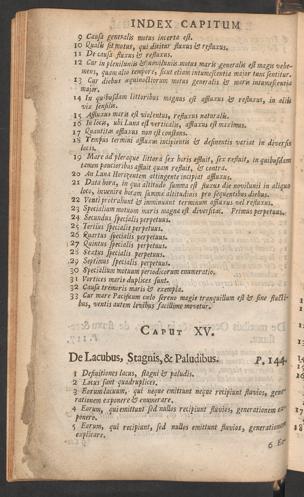 INDEX CAPITUM
9 Causa generalis motus incerta est.
10 Qualis sit motus, qui dicitur fluxus & refluxus.
11 De causa fluxus & refluxus.
12 Cur in pleniluniis & noviluniis motus maris generalis est magis vehe-
mens, quam alio tempore, sicut etiam intumescentia major tunc sentitur.
13 Cur diebus æquinoctiorum motus generalis & maris intumescentia
major.
14 In quibusdam littoribus magnus est affluxus & refluxus, in aliis
vix sensilis.
15 Affluxus maris est violentus, refluxus naturalis.
16 In locis, ubi Luna est verticalis, affluxus est maximus.
17 Quantitas affluxus non est constans.
18 Tempus termini affluxus incipientis & desinentis variat in diversis
locis.
19 Mare ad pleraque littora sex horis affluit, sex refluit, in quibusdam
tamen paucioribus affluit quam refluit, & contra.
20 An Luna Horizontem attingente incipiat affluxus.
21 Data hora, in qua altitudo summa est fluxus die novilunii in aliquo
loco, invenire horam summæ altitudinis pro sequentibus diebus.
22 Venti protrahunt & imminuunt terminum affluxus vel refluxus.
23 Specialium motuum maris magna est diversitas. Primus perpetuus.
24 Secundus specialis perpetuus.
25 Tertius specialis perpetuus.
26 Quartus specialis perpetuus.
27 Quintus specialis perpetuus.
28 Sextus specialis perpetuus.
29 Septimus specialis perpetuus.
30 Specialium motuum periodicorum enumeratio.
31 Vortices maris duplices sunt.
32 Causa tremoris maris & exempla.
33 Cur mare Pacificum cœlo sereno magis tranquillum est & sine flucti-
bus, ventis autem levibus facillime movetur.
CAPUT XV.
De Lacubus, Stagnis, & Paludibus. P. 144.
1 Definitiones lacus, stagni & paludis.
2 Lacus sunt quadruplices.
3 Eorum lacuum, qui neque emittunt neque recipiunt fluvios, gene-
rationem exponere & enumerare.
4 Eorum, qui emittunt sed nullos recipiunt fluvios, generationem ex-
ponere.
5 Eorum, qui recipiunt, sed nullos emittunt fluvios, generationem
explicare.